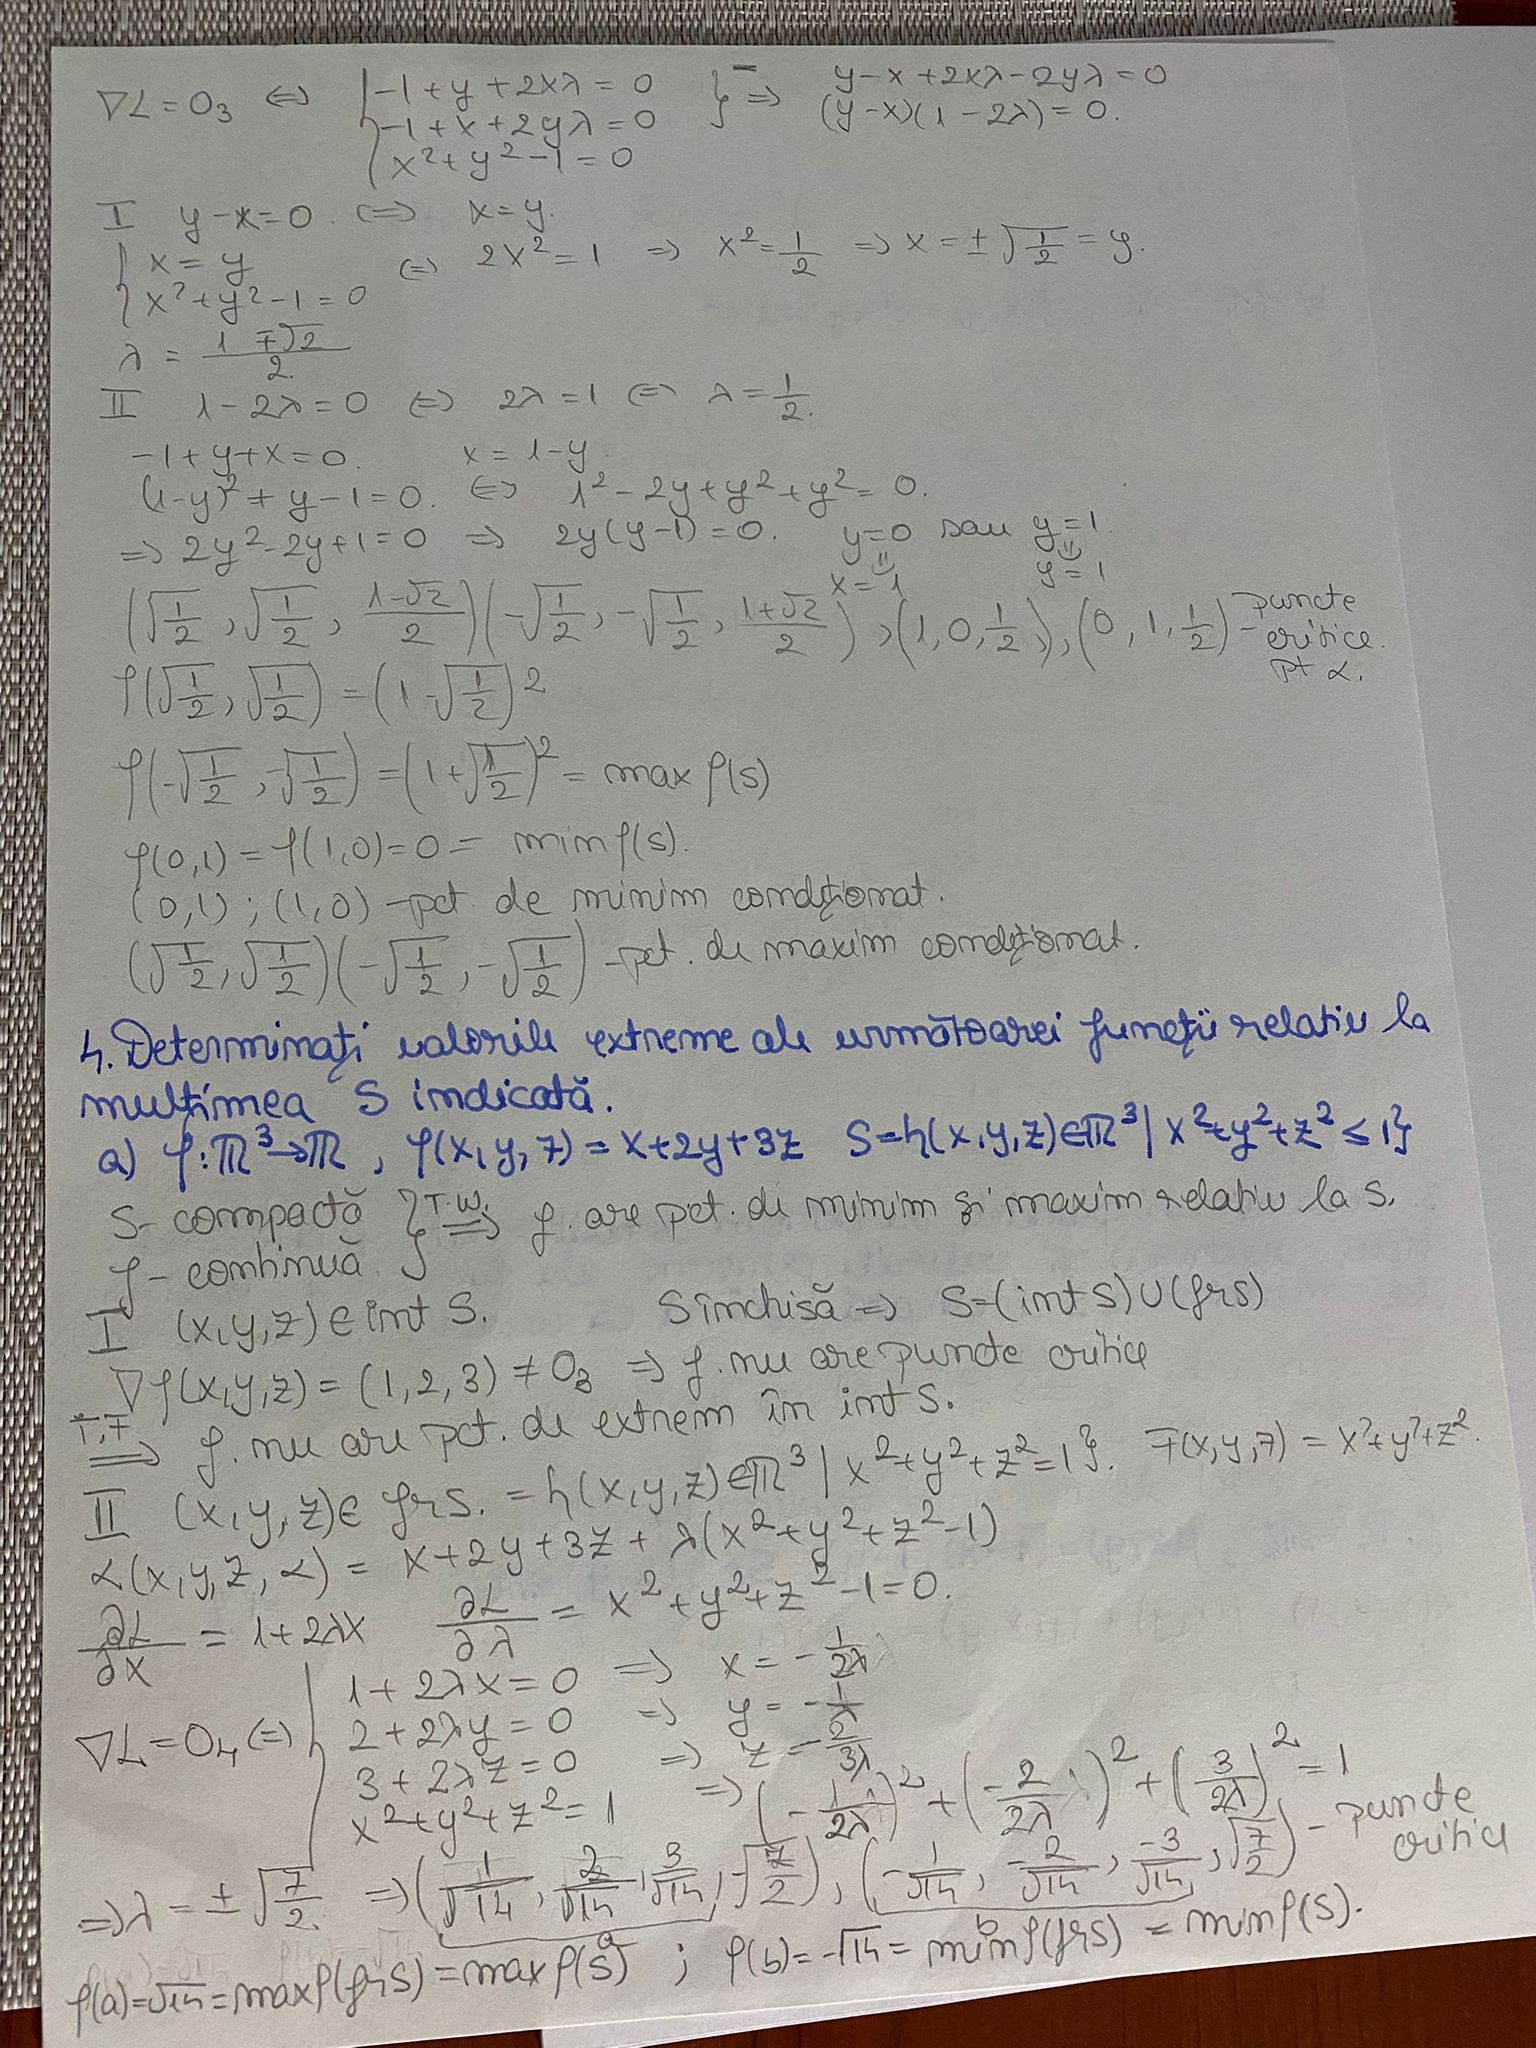 ∇L=0₃ ⇔ { -1+y+2xλ=0 } ⇒ y-x+2xλ-2yλ=0
-1+x+2yλ=0 (y-x)(1-2λ)=0.
x²+y²-1=0
I y-x=0. ⇔ x=y.
{ x=y ⇔ 2x²=1 ⇒ x²=1/2 ⇒ x=±√(1/2)=y.
x²+y²-1=0
λ = (1∓√2)/2
II 1-2λ=0 ⇔ 2λ=1 ⇔ λ=1/2.
-1+y+x=0. x=1-y.
(1-y)²+y-1=0. ⇔ 1²-2y+y²+y²=0.
⇒ 2y²-2y+1=0 ⇒ 2y(y-1)=0. y=0 sau y=1.
x=1 y=1
(√(1/2), √(1/2), (1-√2)/2) (-√(1/2), -√(1/2), (1+√2)/2), (1,0,1/2), (0,1,1/2) - puncte critice pt L.
f(√(1/2), √(1/2)) = (1-√(1/2))²
f(-√(1/2), -√(1/2)) = (1+√(1/2))² = max f(S)
f(0,1)=f(1,0)=0= min f(S).
(0,1) ; (1,0) -pct. de minim condiționat.
(√(1/2), √(1/2)) (-√(1/2), -√(1/2)) -pct. de maxim condiționat.
4. Determinați valorile extreme ale următoarei funcții relativ la
mulțimea S indicată.
a) f:ℝ³→ℝ, f(x,y,z)=x+2y+3z S={(x,y,z)∈ℝ³| x²+y²+z²≤1}
S- compactă } T.W. ⇒ f. are pct. de minim și maxim relativ la S.
f- continuă
I (x,y,z)∈int S. S închisă ⇒ S=(int S)∪(frS)
∇f(x,y,z)=(1,2,3)≠0₃ ⇒ f. nu are puncte critice
T.F ⇒ f. nu are pct. de extrem în int S.
II (x,y,z)∈ frS. = {(x,y,z)∈ℝ³| x²+y²+z²=1}. F(x,y,z)=x²+y²+z².
L(x,y,z,L) = x+2y+3z+λ(x²+y²+z²-1)
∂L/∂x = 1+2λx ∂L/∂λ = x²+y²+z²-1=0.
∇L=0₄ ⇔ { 1+2λx=0 ⇒ x=-1/2λ
2+2λy=0 ⇒ y=-1/λ
3+2λz=0 ⇒ z=-2/3λ
x²+y²+z²=1 ⇒ (-1/2λ)²+(-2/2λ)²+(3/2λ)²=1
⇒ λ=±√(7/2) ⇒ (1/√14, 2/√14, 3/√14, -√(7/2)), (-1/√14, -2/√14, -3/√14, √(7/2)) - puncte critice
a b
f(a)=√14=max f(frS)=max f(S) ; f(b)=-√14=min f(frS)=min f(S).